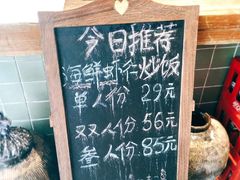 今日推荐
海鲜虾仁炒饭
单人份 29元
双人份 56元
叁人份 85元